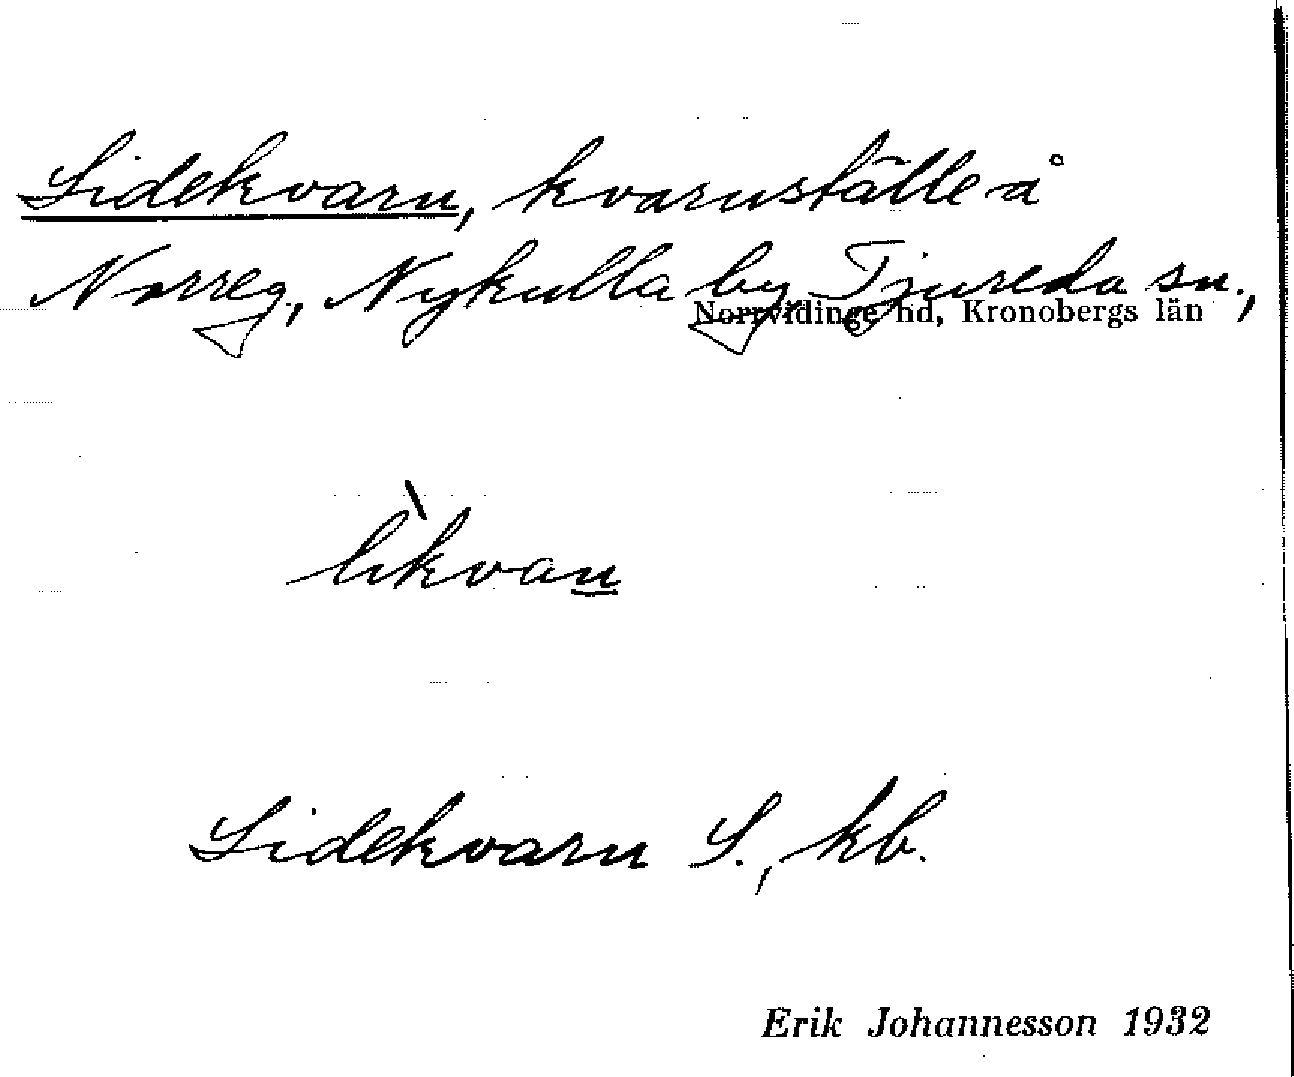 Lidekvarn, kvarnställe å
Norreg, Nykulla by Tjureda sn.,
Norrvidinge hd, Kronobergs län
l̀ikvan
Lidekvarn S., kb.
Erik Johannesson 1932